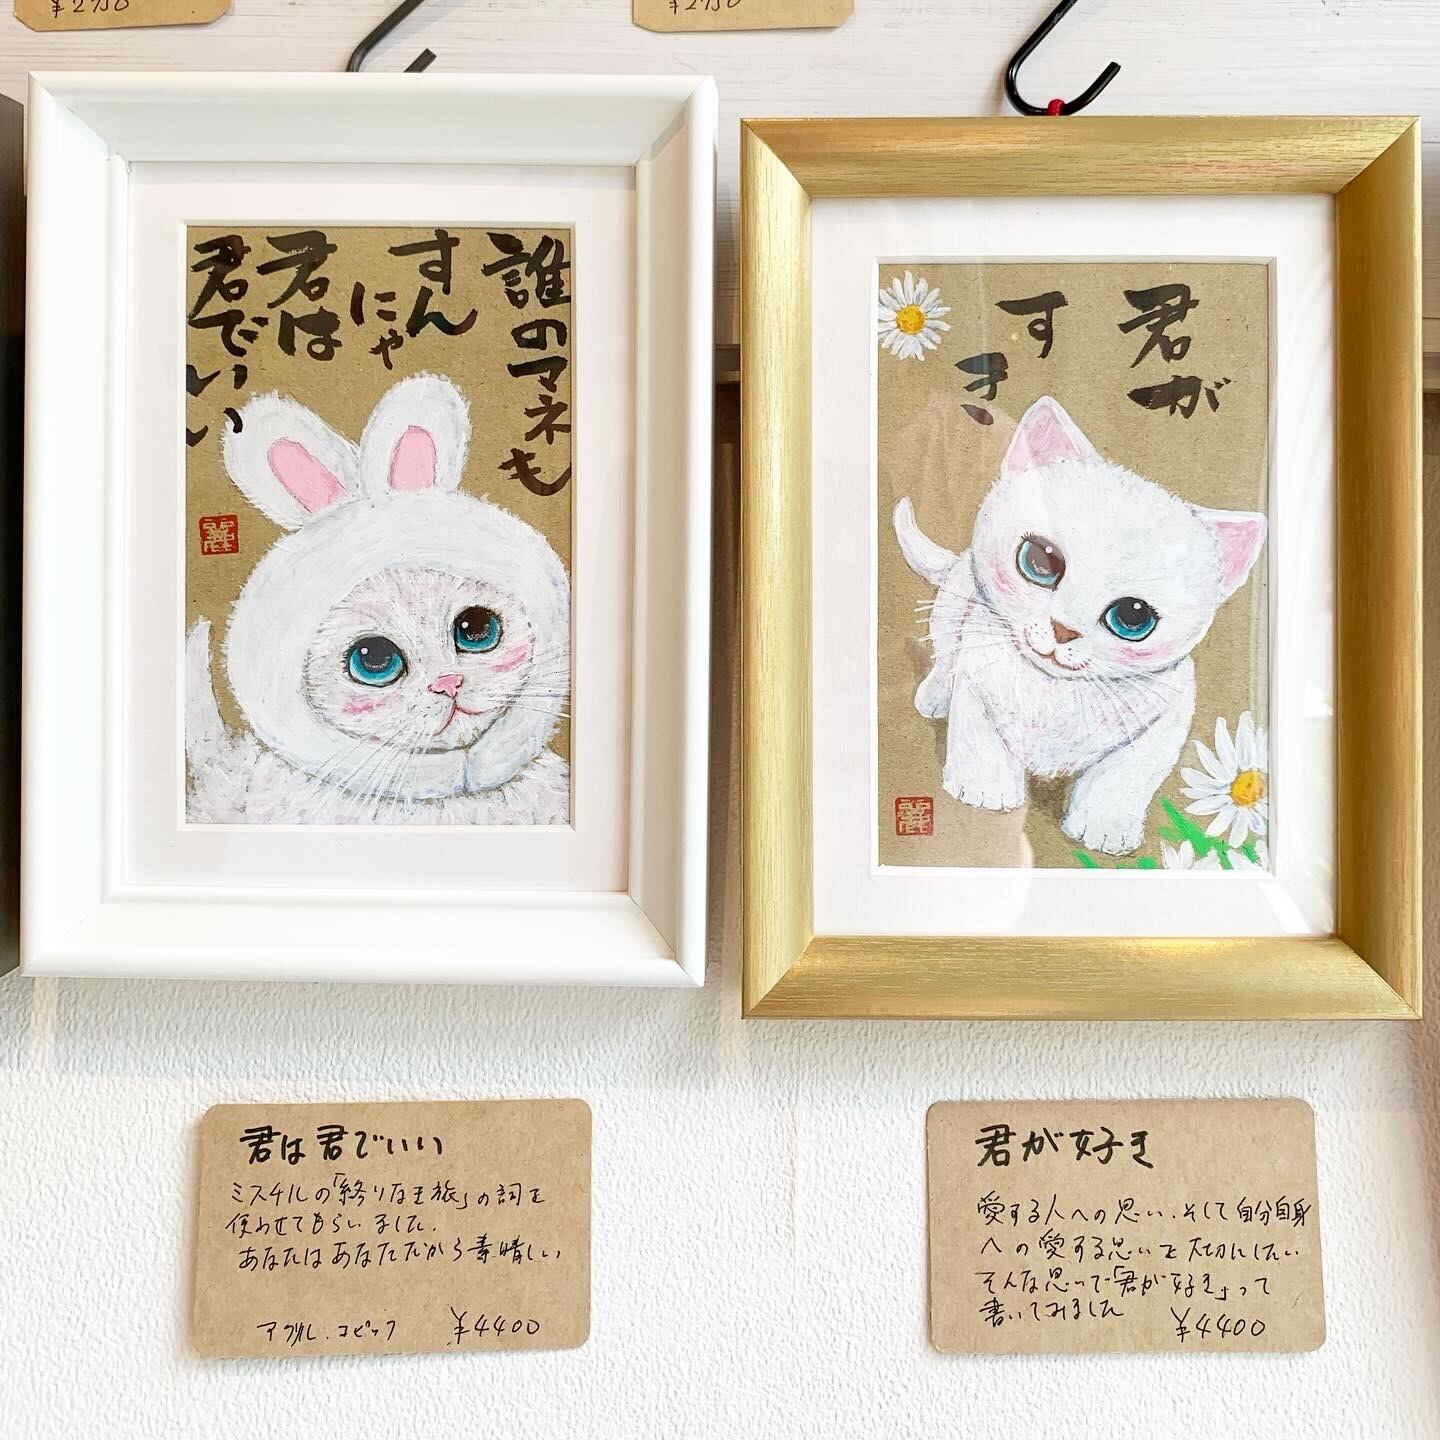 ¥2750
¥2750
誰のマネも
すん
にゃ
君は
君でいい
君が
す
き
君は君でいい
ミスチルの「終りなき旅」の詞を
使わせてもらいました.
あなたはあなただから素晴しい
アクリル.コピック ¥4400
君が好き
愛する人への思い.そして自分自身
への愛する思いを大切にしたい
そんな思いで「君が好き」って
書いてみました
¥4400